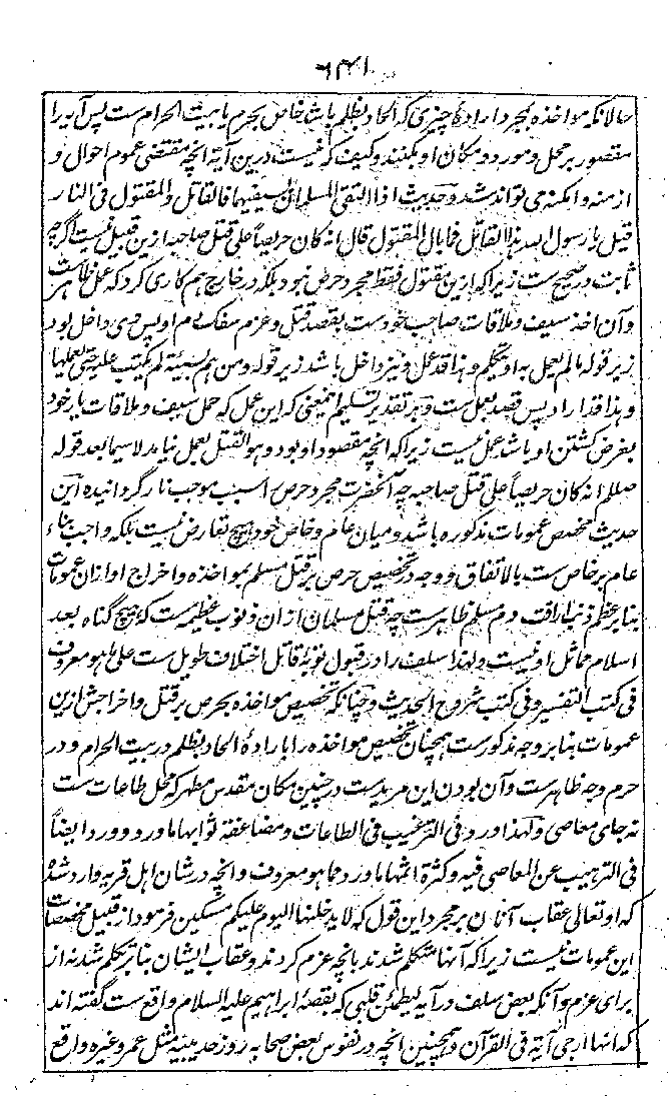 ۶۴۱
حالانکه مواخذه بمجرد اراده چیزی که الحاد بظلم باشد خاص بحرم یا بیت الحرام ست پس آیه را
مقصور بر محل و مورد و مکان او بکنند و کیف که نیست درین آیة انچه مقتضی عموم احوال و
ازمنه و امکنه می تواند شد و حدیث اذا التقی المسلمان بسیفیهما فالقاتل والمقتول فی النار
قیل یا رسول الله هذا القاتل فما بال المقتول قال انه کان حریصاً علی قتل صاحبه ازین قبیل نیست اگرچه
ثابت و صحیح ست زیرا که ازین مقتول فقط مجرد حرص نبود بلکه در خارج هم کاری کرد که عمل ظاهر ست
و آن اخذ سیف و ملاقات صاحب خودست بقصد قتل و عزم سفک دم او پس وی داخل بود
زیر قوله ما لم یعمل به او یتکلم و هذا قد عمل و نیز داخل باشد زیر قوله و من هم بسیئة لم یکتب علیه حتی یعملها
و هذا قد اراد پس قصد بعمل ست و بر تقدیر تسلیم اینمعنی که این عمل که حمل سیف و ملاقات یار خود
بغرض کشتن او باشد عمل نیست زیرا که انچه مقصود او بود و هو القتل بعمل نیامد لا سیما بعد قوله
صللم انه کان حریصاً علی قتل صاحبه چه آنحضرت مجرد حرص اسبب موجب نار گردانیده این
حدیث مخصص عمومات مذکوره باشد و میان عام و خاص خود هیچ تعارض نیست بلکه واجب بناء
عام بر خاص ست بالاتفاق و وجه در تخصیص حرص بر قتل مسلم بمواخذه و اخراج او ازان عمومات
بنا بر عظم ذنب اراقت دم مسلم ظاهرست چه قتل مسلمان از ان ذنوب عظیمه ست که هیچ گناه بعد
اسلام مماثل او نیست و لهذا سلف را در قبول توبۀ قاتل اختلاف طویل ست علی ما هو معروف
فی کتب التفسیر و فی کتب شروح الحدیث و چنانکه تخصیص مواخذه بحرص بر قتل و اخراجش ازین
عمومات بنا بر وجه مذکورست همچنان تخصیص مواخذه را با رادۀ الحاد بظلم در بیت الحرام و در
حرم وجه ظاهرست و آن بودن این مریدست در چنین مکان مقدس مطهر که محل طاعات ست
نه جای معاصی و لهذا ورد فی الترغیب فی الطاعات و مضاعفة ثوابها ما ورد و ورد ایضاً
فی الترهیب عن المعاصی فیه و کثرة اثمها ما ورد مما هو معروف و انچه در شان اهل قریه وارد شده
که او تعالی عقاب آنان بر مجرد این قول که لا یدخلنها الیوم علیکم مسکین فرمود از قبیل مخصصات
این عمومات نیست زیرا که آنها متکلم شدند بانچه عزم کردند و عقاب ایشان بنا بر تکلم شد نه از
برای عزم و آنکه بعض سلف در آیه لیطمئن قلبی که بقصۀ ابراهیم علیه السلام واقع ست گفته اند
که انها ارجی آیة فی القرآن و همچنین انچه در نفوس بعض صحابه روز حدیبیه مثل عمر و غیره واقع